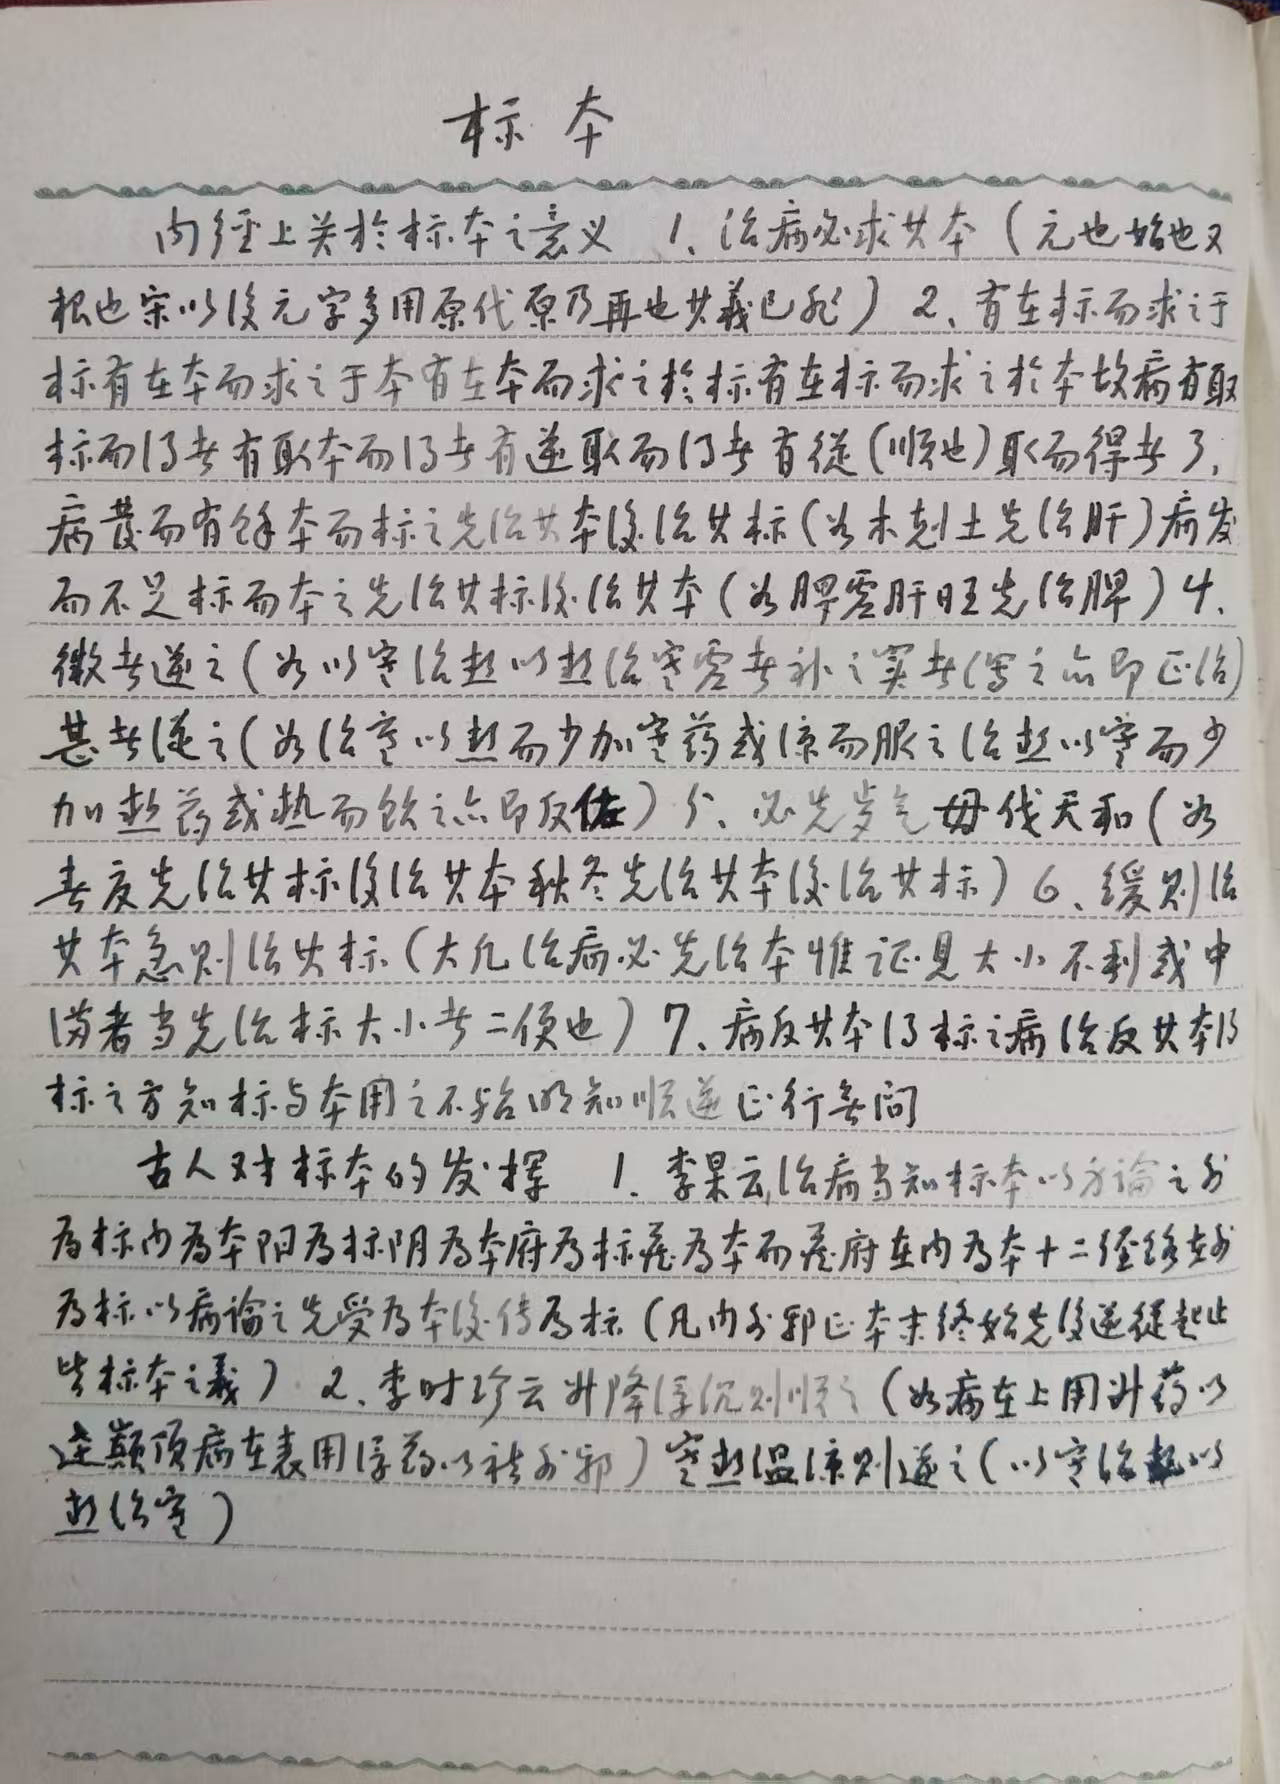 标本
内经上关於标本之意义 1、治病必求其本（元也始也又
根也宋以後元字多用原代原乃再也其義已非）2、有在标而求之于
标有在本而求之于本有在本而求之於标有在标而求之於本故病有取
标而得者有取本而得者有逆取而得者有從（顺也）取而得者3、
病發而有余本而标之先治其本後治其标（如木剋土先治肝）病发
而不足标而本之先治其标後治其本（如脾虚肝旺先治脾）4、
微者逆之（如以寒治热以热治寒虚者补之实者泻之亦即正治）
甚者從之（如治寒以热而少加寒药或凉而服之治热以寒而少
加热药或热而饮之亦即反佐）5、必先岁气毋伐天和（如
春夏先治其标後治其本秋冬先治其本後治其标）6、缓则治
其本急则治其标（大凡治病必先治本惟证见大小不利或中
满者当先治标大小者二便也）7、病反其本得标之病治反其本得
标之方知标与本用之不殆明知顺逆正行無问
古人对标本的发挥 1、李杲云，治病当知标本以身論之外
为标内为本阳为标阴为本府为标藏为本而藏府在内为本十二经络在外
为标以病論之先受为本後传为标（凡内外邪正本末终始先後逆從起止
皆标本之義）2、李时珍云升降浮沉则顺之（如病在上用升药以
达巅顶病在表用浮药以祛外邪）寒热温凉则逆之（以寒治热以
热治寒）